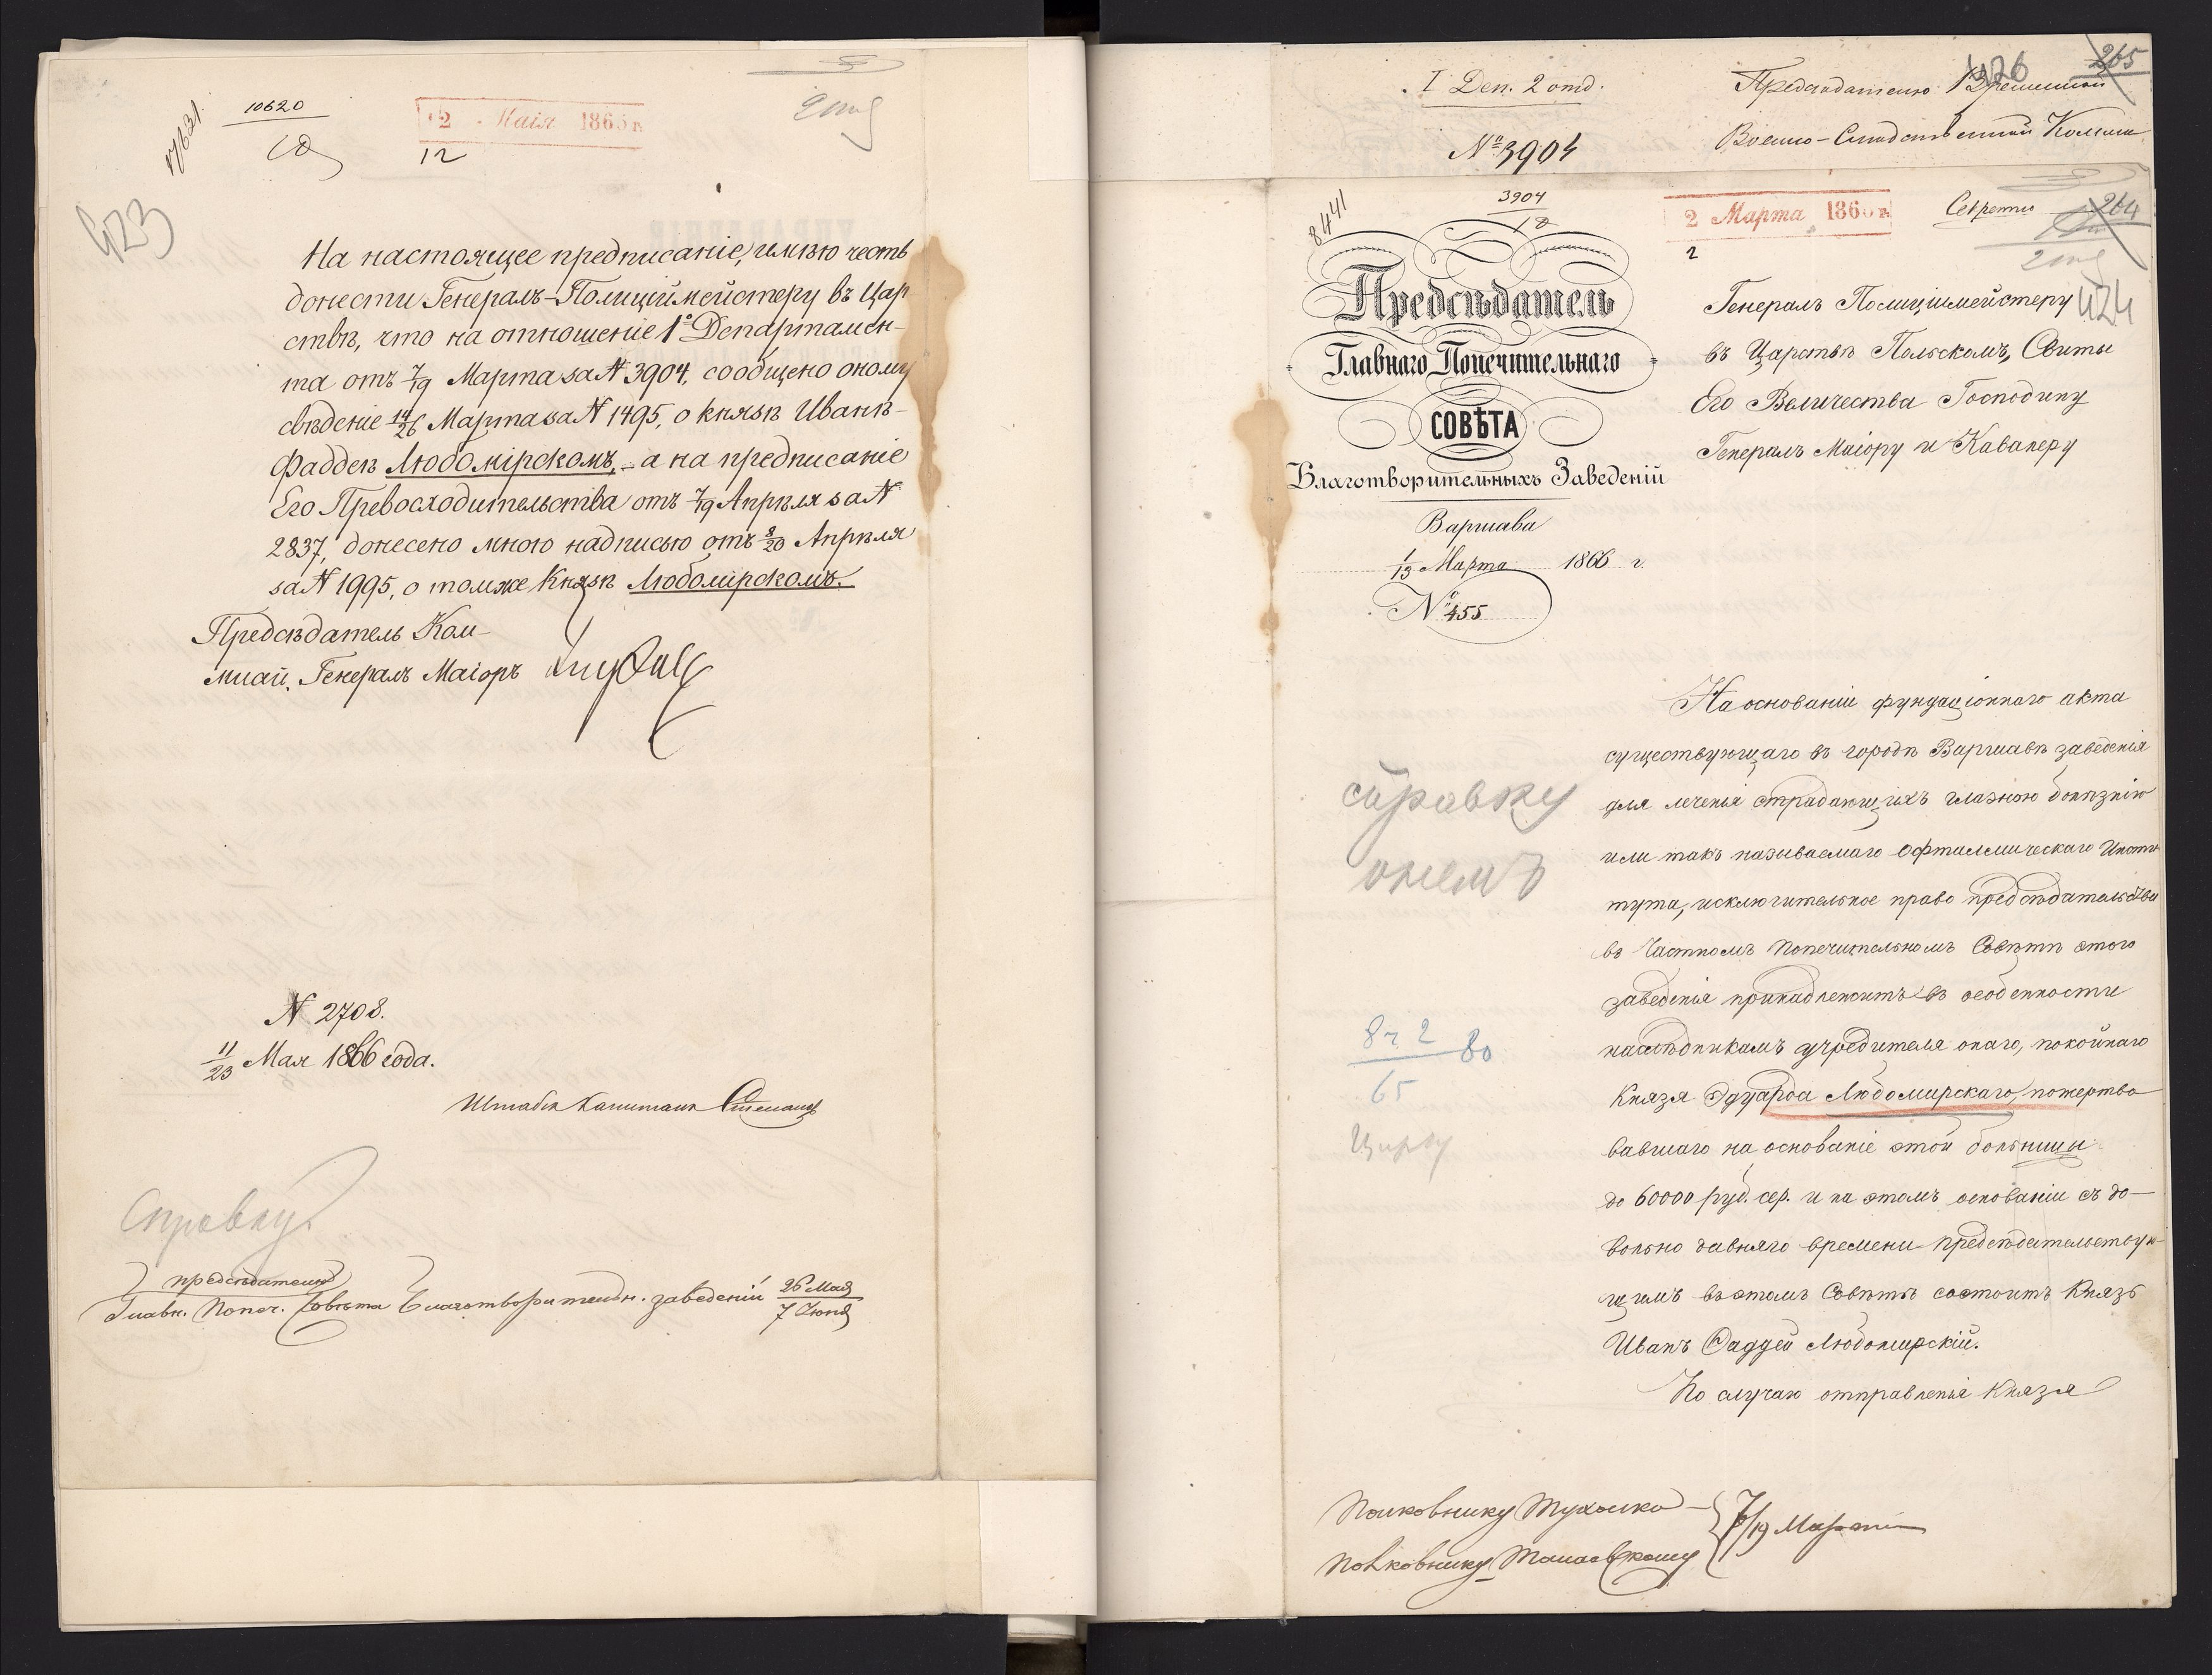 17631
10620
12 Маія 1866 г.
12
2 отд
423
На настоящее предписаніе, имѣю честь
донести Генералъ-Полиціймейстеру въ Цар-
ствѣ, что на отношеніе 1го Департамен-
та отъ 7/19 Марта за N 3904, сообщено оному
свѣденіе 14/26 Марта за N 1495, о князѣ Иванѣ-
Фаддеѣ Любомірскомъ, - а на предписаніе
Его Превосходительства отъ 7/19 Апрѣля за N
2837, донесено мною надписью отъ 8/20 Апрѣля
за N 1995, о томже Князѣ Любомірскомъ.
Предсѣдатель Ком-
мисіи, Генералъ Маіоръ
N 2708.
11/23 Мая 1866 года.
Штабсъ Капитанъ
Справку
предсѣдателю
Главн. Попеч. Совѣта Благотворительн. заведеній 26 Мая
7 Іюня
I Деп. 2 отд.
№ 3904
Предсѣдателю Временной
Военно-Слѣдственной Коммис
426
265
8441
3904
18
2 Марта 1866 г.
2
Секретно
264
2 отд
424
Предсѣдатель
Главнаго Попечительнаго
СОВѢТА
Благотворительныхъ Заведеній
Варшава
1/13 Марта 1866 г.
№ 455
Генералъ Полиціймейстеру
въ Царствѣ Польскомъ, Свиты
Его Величества Господину
Генералъ Маіору и Кавалеру
На основаніи фундаціоннаго акта
существующаго въ городѣ Варшавѣ заведенія
для леченія страдающихъ глазною болѣзнію
или такъ называемаго Офталмическаго Инсти
тута, исключительное право предсѣдательства
въ Частномъ Попечительномъ Совѣтѣ этого
заведенія принадлежитъ въ особенности
наслѣдникамъ учредителя онаго, покойнаго
Князя Эдуарда Любомирскаго, пожертво-
вавшаго на основаніе этой больницы
до 60000 руб. сер. и на этомъ основаніи съ до-
вольно давняго времени предсѣдательствую-
щимъ въ этомъ Совѣтѣ состоитъ Князь
Иванъ Фаддей Любомирскій.
По случаю отправленія Князя
справку
о немъ
8 ч 2
65
80
Полковнику Тухолко
Полковнику
7/19 Марта